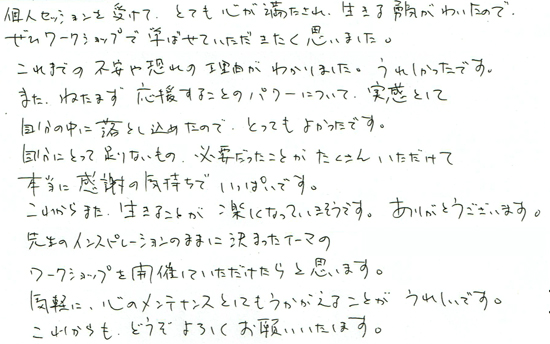 個人セッションを受けて、とても心が満たされ、生きる勇気がわいたので、
ぜひワークショップで学ばせていただきたく思いました。
これまでの不安や恐れの理由がわかりました。うれしかったです。
また、ねたまず応援することのパワーについて、実感として
自分の中に落とし込めたので、とってもよかったです。
自分にとって足りないもの、必要だったことがたくさんいただけて
本当に感謝の気持ちでいっぱいです。
これからまた、生きることが楽しくなっていきそうです。ありがとうございます。
先生のインスピレーションのままに決まったテーマの
ワークショップを開催していただけたらと思います。
気軽に、心のメンテナンスとしてもうかがえることがうれしいです。
これからも、どうぞよろしくお願いいたします。